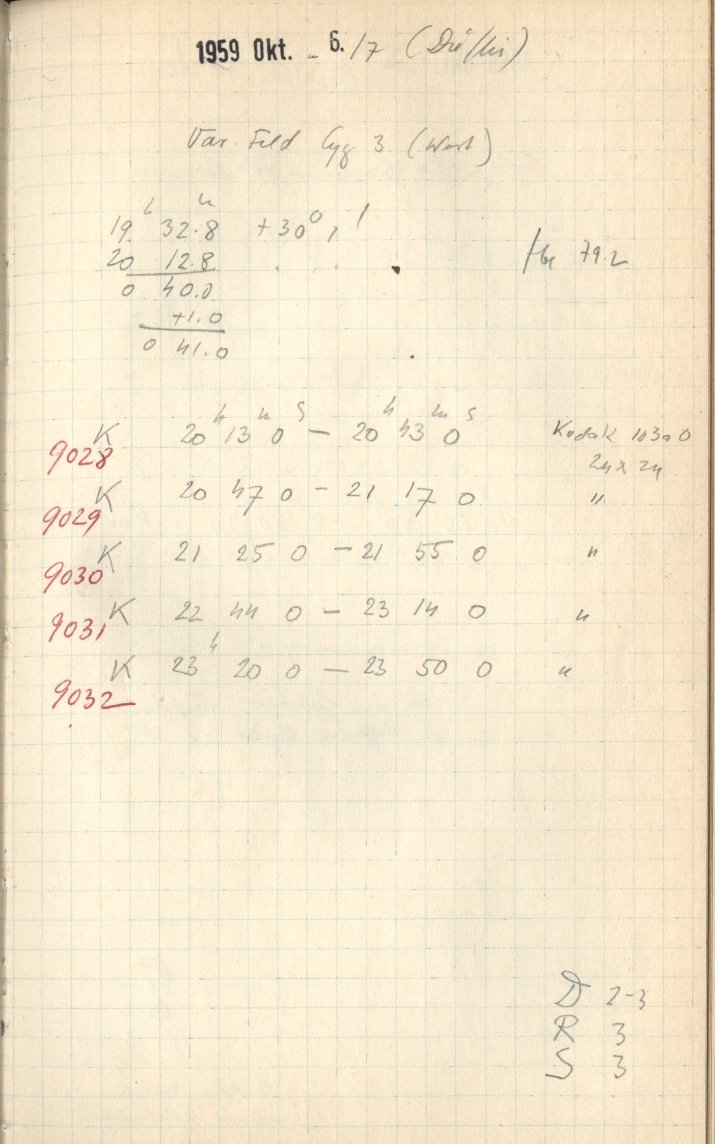 1959 Okt. – 6./7
Var. Feld Cyg 3 (West)
19 h 32.8 m +30° 1'
20 12.8
0 40.0
+1.0
0 41.0
79.2
9028 K 20 h 13 m 0 s – 20 h 43 m 0 s Kodak 103a0
24 x 24
9029 K 20 47 0 – 21 17 0 "
9030 K 21 25 0 – 21 55 0 "
9031 K 22 44 0 – 23 14 0 "
9032 K 23 h 20 0 – 23 50 0 "
D 2-3
R 3
S 3